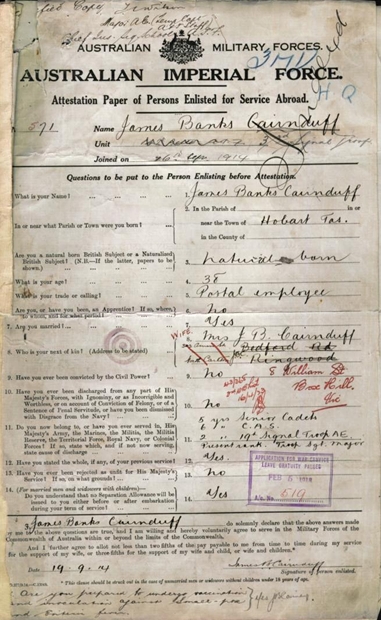 Copy
AUSTRALIAN MILITARY FORCES.
AUSTRALIAN IMPERIAL FORCE.
H Q
Attestation Paper of Persons Enlisted for Service Abroad.
571 Name James Banks Cairnduff
Unit Signal Troop
Joined on 1914
Questions to be put to the Person Enlisting before Attestation.
What is your Name? 1. James Banks Cairnduff
In or near what Parish or Town were you born? 2. In the Parish of in or
near the Town of Hobart Tas.
in the County of
Are you a natural born British Subject or a Naturalised
British Subject? (N.B.—If the latter, papers to be
shown.) 3. Natural born
What is your age? 4. 38
What is your trade or calling? 5. Postal employee
Are you, or have you been, an Apprentice? If so, where,
to whom, and for what period? 6. No
7. Are you married? 7. Yes
8. Who is your next of kin? (Address to be stated) 8. WIFE Mrs J B Cairnduff
Bedford Rd
Ringwood
8 William St
Box Hill
Vic
9. Have you ever been convicted by the Civil Power? 9. No
10. Have you ever been discharged from any part of His
Majesty's Forces, with Ignominy, or as Incorrigible and
Worthless, or on account of Conviction of Felony, or of
a Sentence of Penal Servitude, or have you been dismissed
with Disgrace from the Navy? 10. No
11. Do you now belong to, or have you ever served in, His
Majesty's Army, the Marines, the Militia, the Militia
Reserve, the Territorial Force, Royal Navy, or Colonial
Forces? If so, state which, and if not now serving,
state cause of discharge 11. 5 yrs Senior Cadets
19th Signal Troop A.E.
Present rank Troop Sgt Major
12. Have you stated the whole, if any, of your previous service? 12. Yes
13. Have you ever been rejected as unfit for His Majesty's
Service? If so, on what grounds? 13. No
14. (For married men and widowers with children)
Do you understand that no Separation Allowance will be
issued to you either before or after embarkation
during your term of service? 14. Yes
APPLICATION FOR WAR
GRATUITY POSTED
FEB
519
I, James Banks Cairnduff do solemnly declare that the above answers made
by me to the above questions are true, and I am willing and hereby voluntarily agree to serve in the Military Forces of the
Commonwealth of Australia within or beyond the limits of the Commonwealth.
And I further agree to allot not less than two fifths of the pay payable to me from time to time during my service
for the support of my wife, or three fifths for the support of my wife and child, or wife and children.*
Date 19.9.14 James B. Cairnduff
Signature of person enlisted.
* This clause should be struck out in the case of unmarried men or widowers without children under 18 years of age.
Are you prepared to undergo vaccination
and inoculation against small-pox
and enteric fever